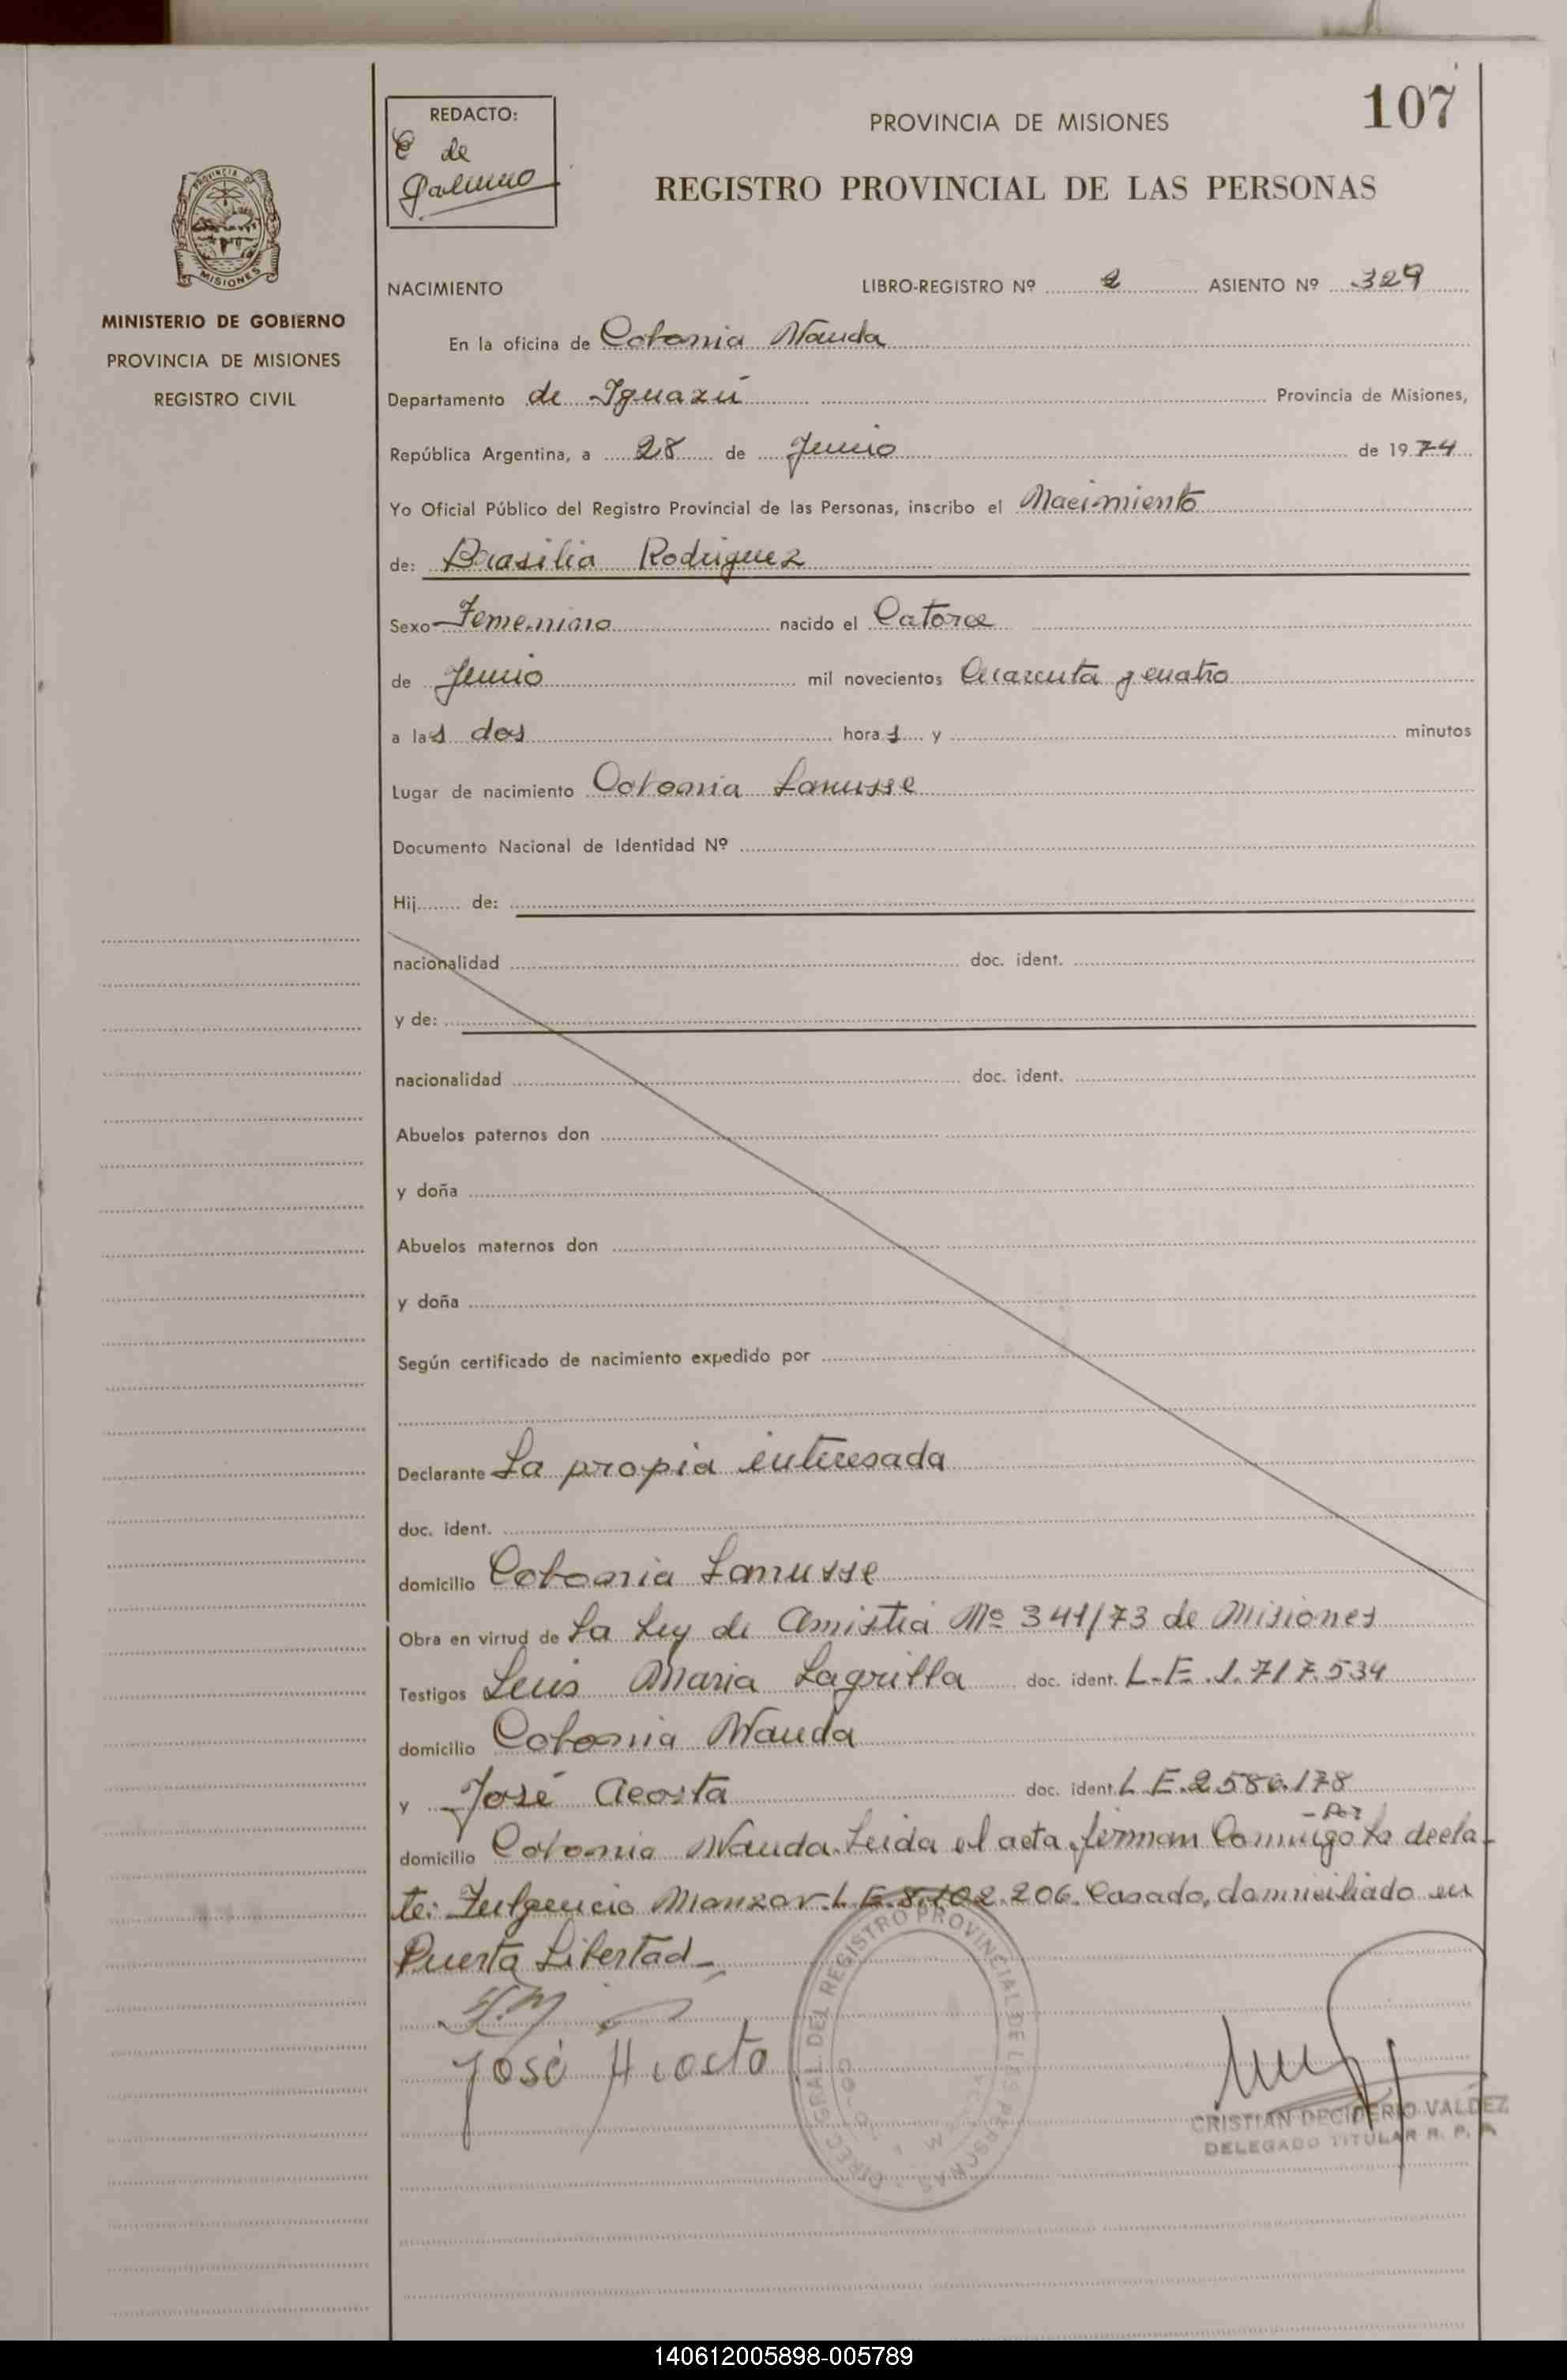 107
REDACTO:
E de
Galeano
PROVINCIA DE MISIONES
REGISTRO PROVINCIAL DE LAS PERSONAS
PROVINCIA DE
MISIONES
MINISTERIO DE GOBIERNO
PROVINCIA DE MISIONES
REGISTRO CIVIL
NACIMIENTO LIBRO-REGISTRO Nº 2 ASIENTO Nº 329
En la oficina de Colonia Wanda
Departamento de Iguazú Provincia de Misiones,
República Argentina, a 28 de Junio de 1974
Yo Oficial Público del Registro Provincial de las Personas, inscribo el Nacimiento
de: Brasilia Rodriguez
Sexo Femenino nacido el Catorce
de Junio mil novecientos Cuarenta y cuatro
a las dos horas y minutos
Lugar de nacimiento Colonia Lanusse
Documento Nacional de Identidad Nº
Hij de:
nacionalidad doc. ident.
y de:
nacionalidad doc. ident.
Abuelos paternos don
y doña
Abuelos maternos don
y doña
Según certificado de nacimiento expedido por
Declarante La propia interesada
doc. ident.
domicilio Colonia Lanusse
Obra en virtud de La Ley de Amistia Nº 341/73 de Misiones
Testigos Luis Maria Lagrilla doc. ident. L.E. 1.717.534
domicilio Colonia Wanda
y José Acosta doc. ident. L.E. 2.586.178
domicilio Colonia Wanda. Leida el acta firman Conmigo -Por la decla-
te: Fulgencio Manzor. L.E. 8.102.206. Casado, domiciliado en
Puerto Libertad_
José Acosta
DIREC. GRAL. DEL REGISTRO PROVINCIAL DE LAS PERSONAS
CRISTIAN DECIDERIO VALDEZ
DELEGADO TITULAR R. P. P.
140612005898-005789